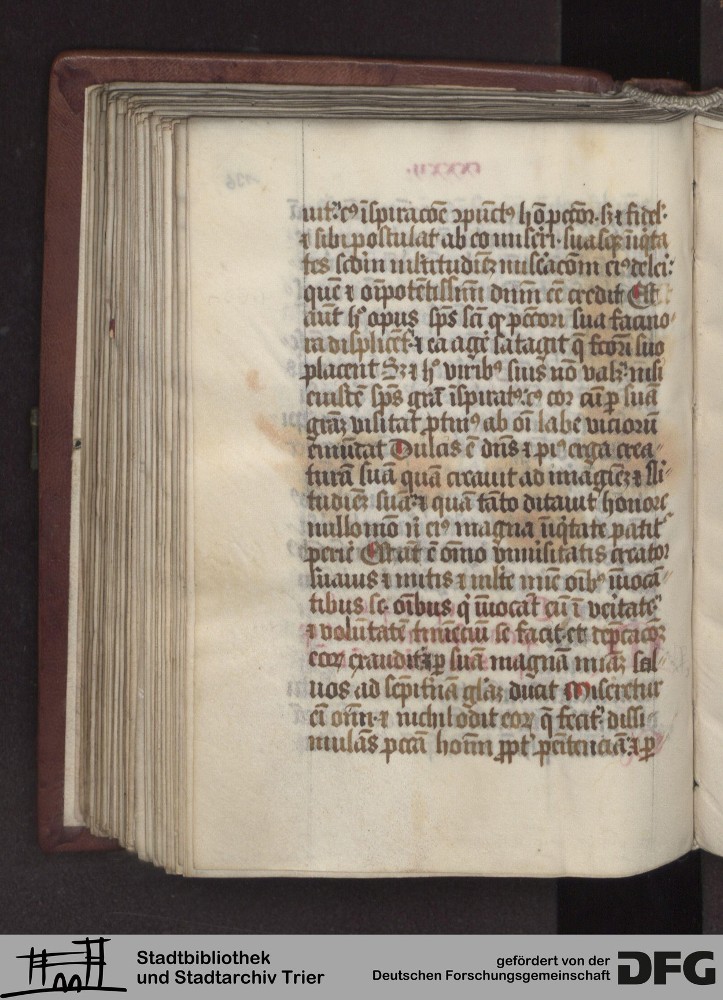 ıuit᷑ eꝰ īspiracōe ꝯpūctꝰ hō pctōr. sꝫ ⁊ fidel᷑
⁊ sibi postulat ab eo miseri. suasqꝫ īiqͥta
tes scdm multitudinē miseracōm eiꝰ deleri:
quē ⁊ oīpotētissimū dnm eē credit Est
aūt h opus sps scī qͥ pctori sua facino
ra displicēt ⁊ ea agē satagit q̄ fctori suo
placent Sꝫ ⁊ hͦ viribꝰ suis nō valꝫ nisi
eiusdē sps grā īspiratꝰ eꝰ cor cū ꝑ suā
grāꝫ visitat ꝓtinꝰ ab oī labe vicioꝝ
emūdat Dulcis ē dns ⁊ piꝰ erga crea
turā suā quā creauit ad imaginē ⁊ sīi
tudinē suā ⁊ quā tāto ditauit honore
nullo mō ī eiꝰ magna īiqͥtate patit᷑
perire Est aūt ē omō vniuersitatis creator
suauis ⁊ mitis ⁊ multe mīe oībꝰ īuocā
tibus se. oībus qͥ īuocāt eū ī veritate
⁊ volūtatē timenciū se facit et deprecacōꝫ
eoꝝ exaudit ⁊ ꝑ suā magnā mīaꝫ sal
uos ad sempiternā glāꝫ ducit Miseretur
eī oīm ⁊ nichil odit eoꝝ q̄ fecit dissi
mulās pctā hoīm ꝓpt᷑ penitenciā ⁊ ꝑ
Stadtbibliothek
und Stadtarchiv Trier
gefördert von der
Deutschen Forschungsgemeinschaft
DFG